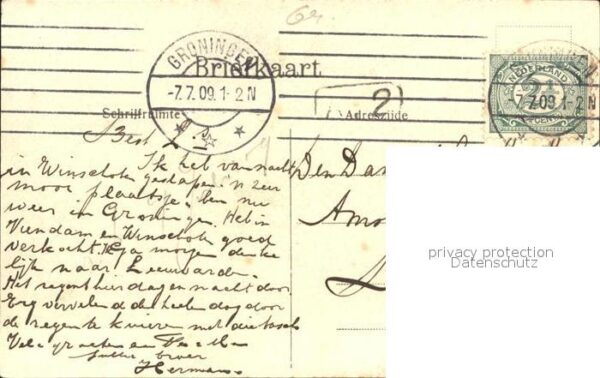 GRONINGEN
Briefkaart
-7.7.09.1-2N
Schrijfruimte
Adreszijde
NEDERLAND
2½
-7.7.09.1-2N
2
Best
Ik heb van nacht
in Winschoten geslapen 'n zeer
mooi plaatsje ben nu
weer in Groningen. Heb in
Veendam en Winschoten goed
verkocht. Ga morgen denke
lijk naar Leeuwarden.
Het regent hier dag en nacht door
Erg vervelend de heelen dag door
de regen te
Vele groeten en
broer
Herman
Den Da
privacy protection
Datenschutz